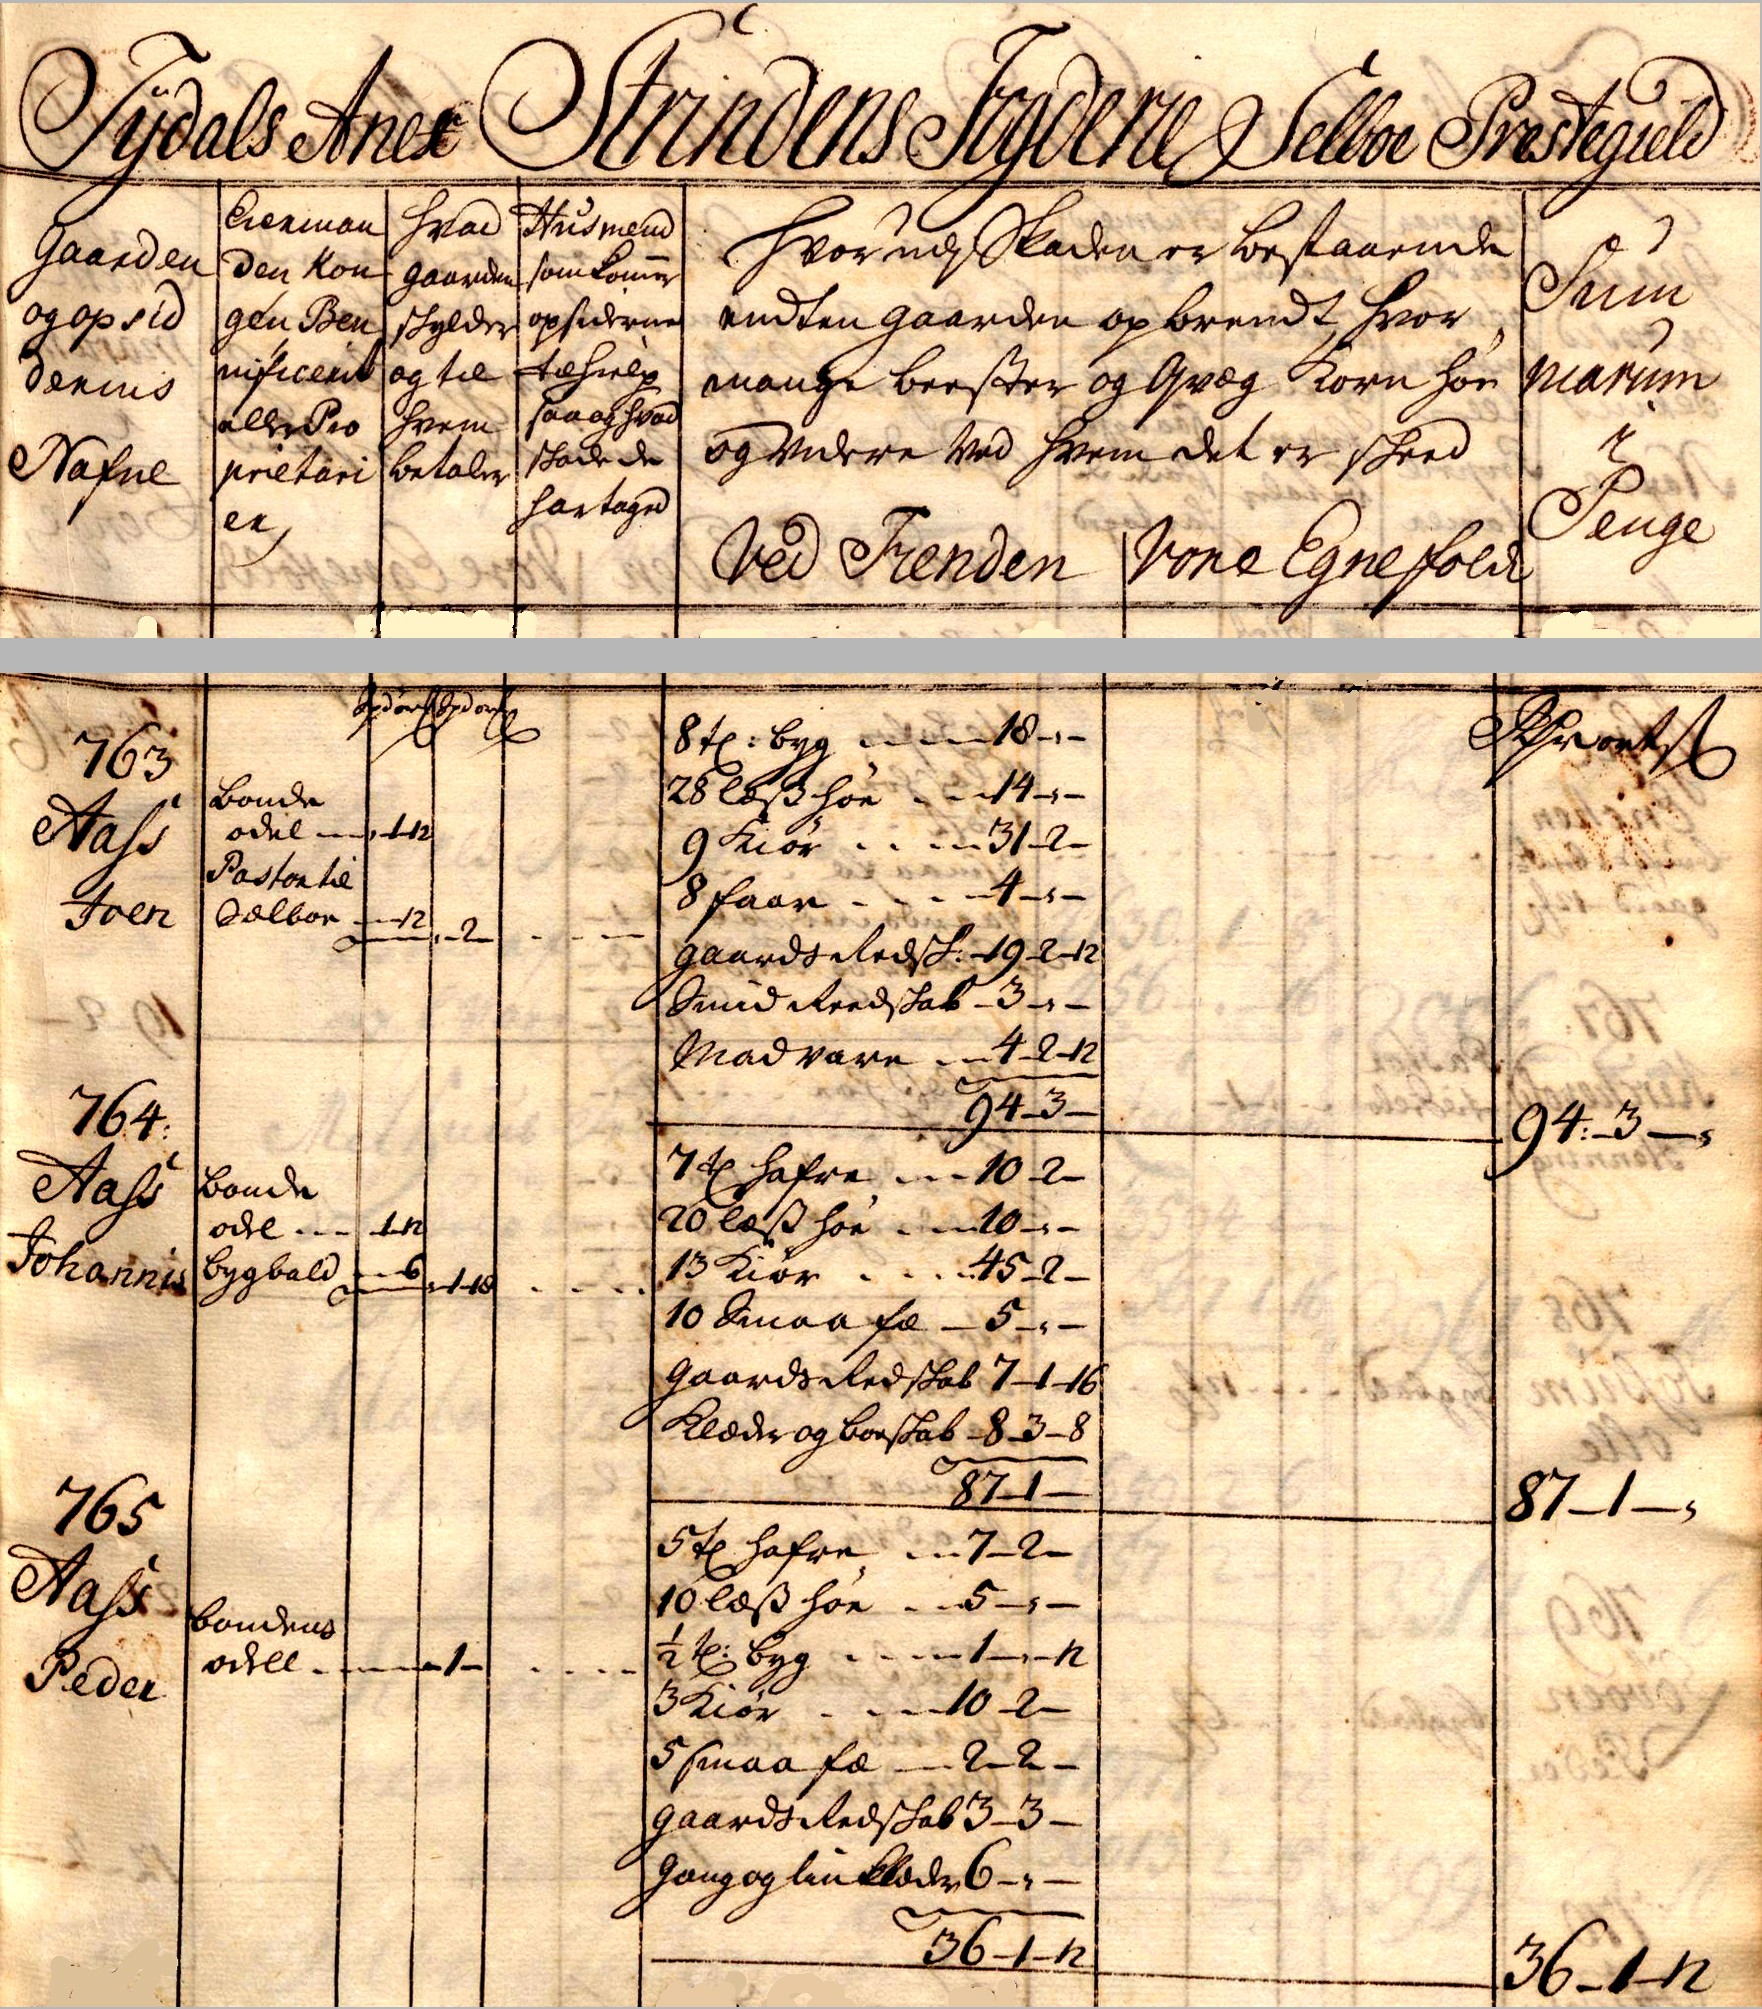 Tÿdals Anex Strindens Fogderie Selboe Prestegield
Gaarden
og opsid
dernis
Nafne
Eierman
den Kon
gen Ben
nificerit
eller Pro
prietari
er,
hvad
gaarden
skylder
og til
hvem
betaler
Husmend
som komer
opsiderne
til hielp
saa og hvad
skade de
har taged
Hvor udj Skaden er bestaaende
endten gaarden opbrendt, hvor
mange beester og Qvæg Korn høe
og videre ved hvem det er skeed
Ved Fienden
Vore Egne folck
Sum
marum
i
Penge
763
Aass
Joen
Bonde
odel - 1-12
Pastor til
Sælboe - 12
- 2 -
8 t: byg - 18 - -
28 læss høe - 14 - -
9 Kiør - 31-2-
8 faar - 4 - -
gaards Redsk: - 19-2-12
Smid Reedskab - 3 - -
Madvare - 4-2-12
94-3-
94:-3-
764:
Aass
Johannis
Bonde
odel - 1-12
bygbald - 6
- 1-18
7 t hafre - 10-2-
20 læss høe - 10 - -
13 Kiør - 45-2-
10 Smaa fæ - 5 - -
gaards Redskab 7-1-16
Klæder og boeskab - 8-3-8
87-1-
87-1-
765
Aass
Peder
bondens
odell - 1-
5 t hafre - 7-2-
10 læss høe - 5 - -
½ t: byg - 1 - - 12
3 Kiør - 10-2-
5 smaa fæ - 2-2-
gaards Redskab 3-3-
gang og lin klæder 6 - -
36-1-12
36-1-12